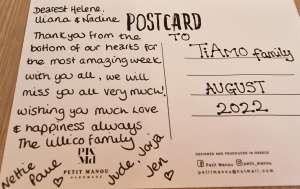 Dearest Helene,
Iliana & Nadine
Thankyou from the
bottom of our hearts for
the most amazing week
with you all, we will
miss you all very much!
wishing you much Love
& happiness always
The Ullico family
Nettie
Paul
Jude, Jorja
Jen
POSTCARD
TO
TiAMO family
AUGUST
2022
PETIT MANOU
HANDMADE
DESIGNED AND PRODUCED IN GREECE
Petit Manou
petit_manou
petitmanou@hotmail.com